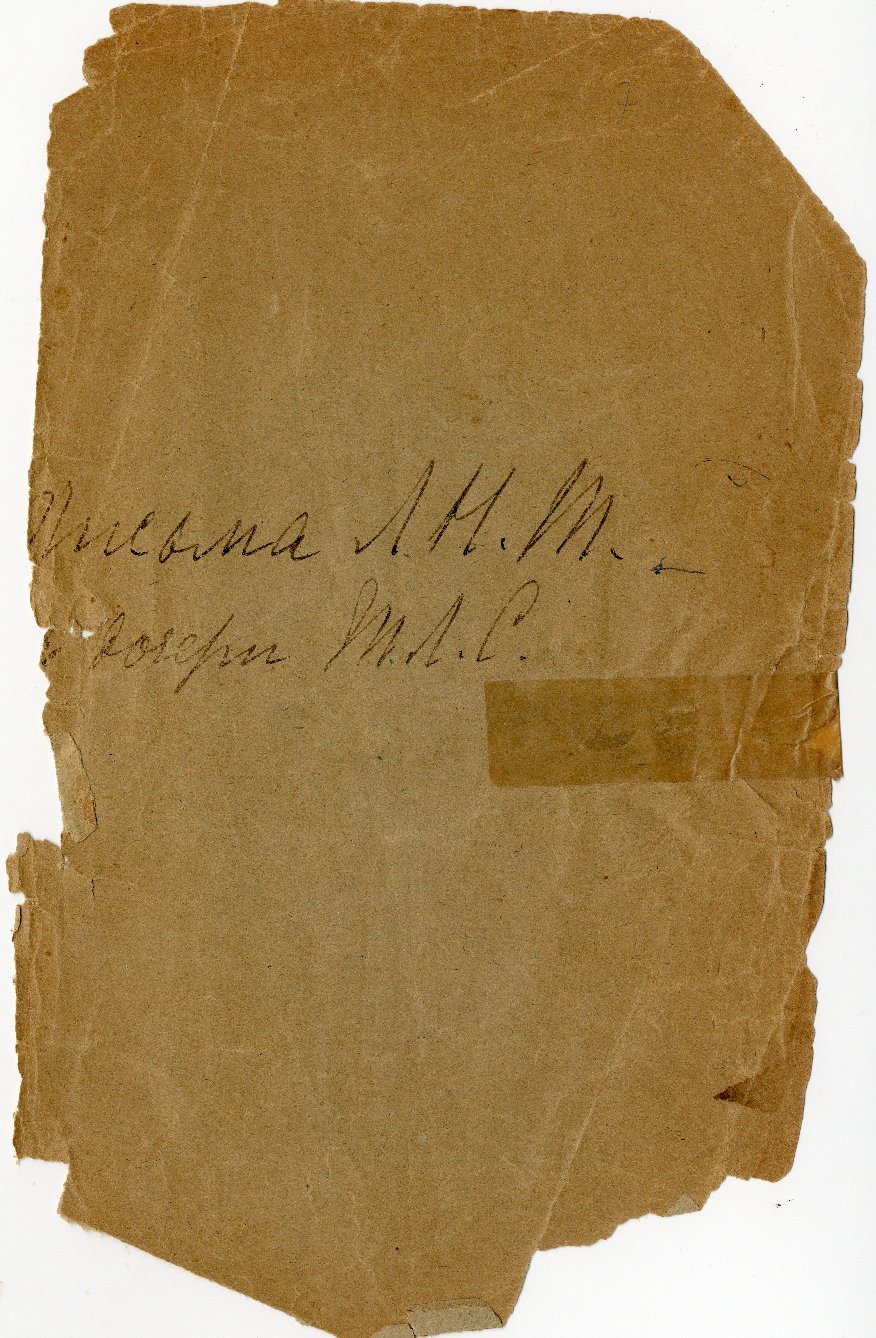 Письма Л. Н. Т.
дочери Т. Л. С.